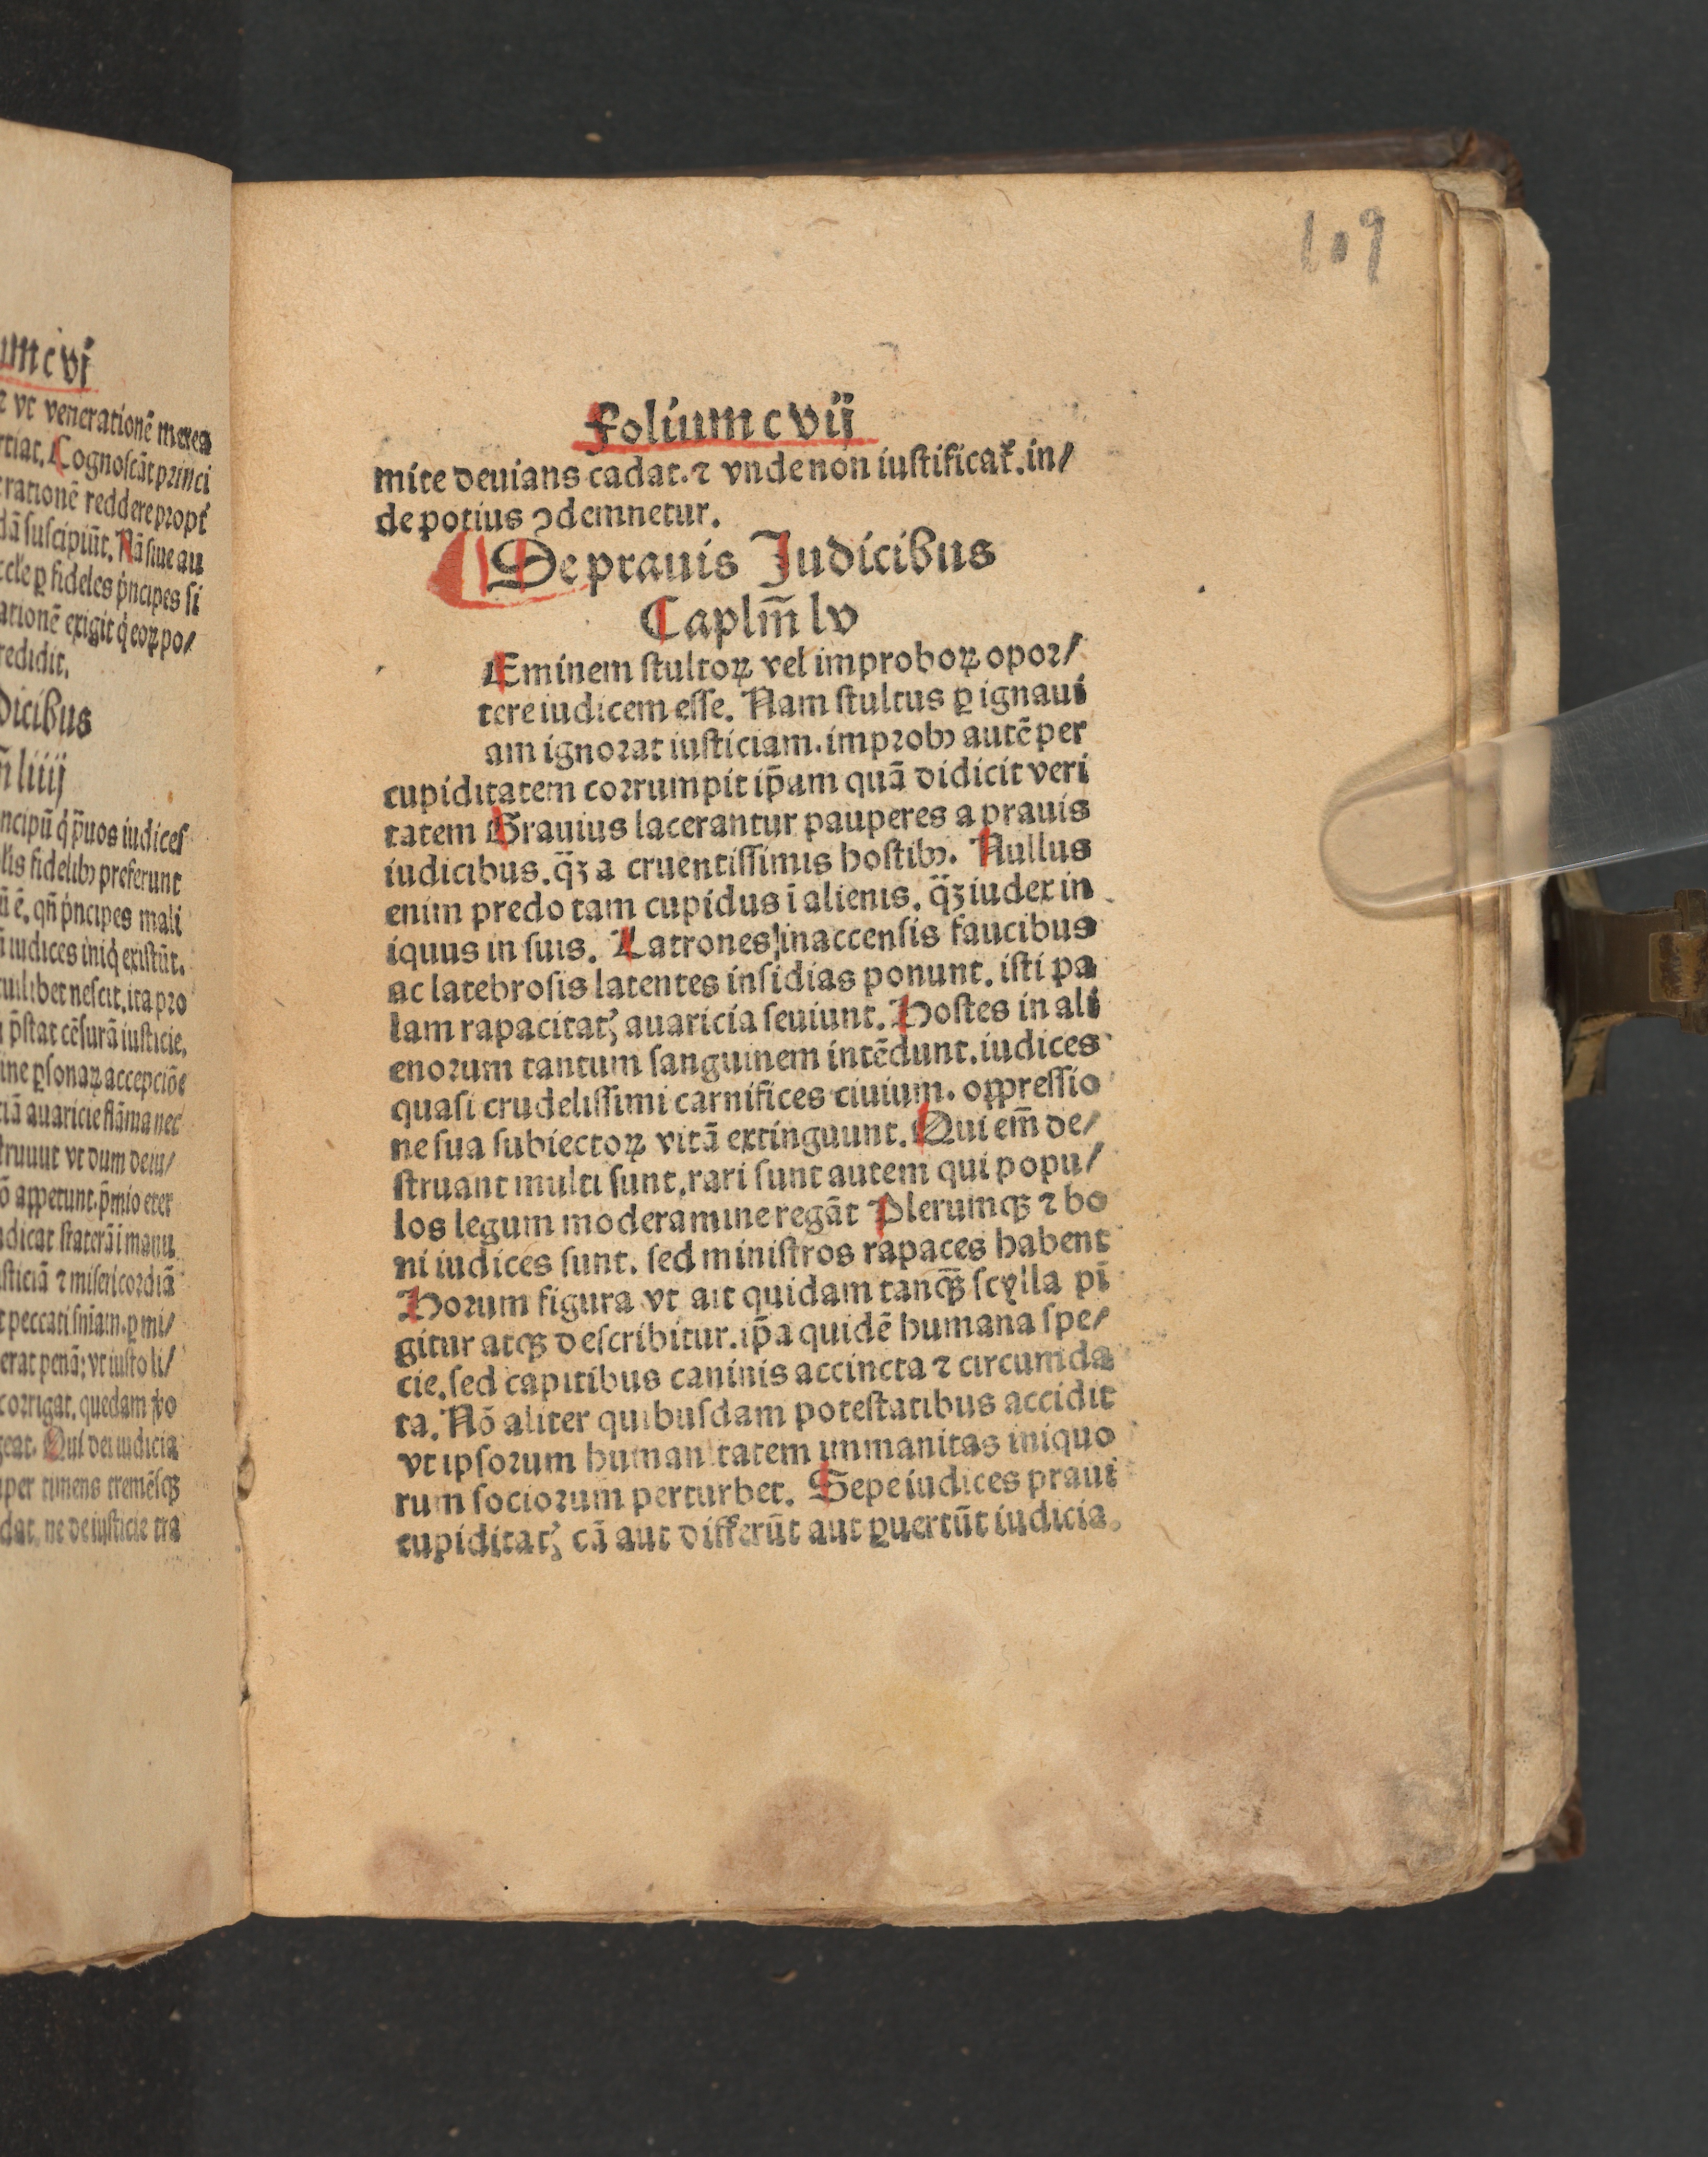 umcvj
⁊ vt venerationē merea
rtiat. Cognoſcāt princi
rationē reddere propt̉
dā ſuſcipiūt. Nā ſiue au
ccl'e ꝑ fideles p̉ncipes ſi
ationē exigit q̉ eoꝝ po/
redidit.
dicibus
m̄ liiij
ncipū q̉ p̄uos iudices
lis fidelibꝰ preferunt
ū ē. qn̄ p̉ncipes mali
iudices iniq̉ exiſtūt.
cuilibet neſcit. ita pro
p̄ſtat cēſurā iuſticie.
ine ꝑſonaꝝ accepciōe
ciā auaricie flāma nec
ſtruuut vt dum deiu/
ō appetunt. p̄mio eter
udicat ſtaterā i manu
iſticiā ⁊ miſericordiā
t peccati ſniam. ꝑ mi/
erat penā; vt iuſto li/
corrigat. quedam ꝟo
geat. Qui dei iudicia
uper timens tremēſqꝫ
dat. ne de iuſticie tra
109
Folium c vij
mite deuians cadat. ⁊ vnde non iuſtificat̉. in/
de potius ꝯdemnetur.
De prauis Judicibus
Caplm̄ lv
Eminem ſtultoꝝ vel improboꝝ opor/
tere iudicem eſſe. Nam ſtultus ꝑ ignaui
am ignorat iuſticiam. improbꝰ autē per
cupiditatem corrumpit ip̄am quā didicit veri
tatem Grauius lacerantur pauperes a prauis
iudicibus. q̄ꝫ a cruentiſſimis hoſtibꝰ. Nullus
enim predo tam cupidus ī alienis. q̄ꝫ iudex in
iquus in ſuis. Latrones inaccenſis faucibus
ac latebroſis latentes inſidias ponunt. iſti pa
lam rapacitatꝭ auaricia ſeuiunt. Hoſtes in ali
enorum tantum ſanguinem intēdunt. iudices
quaſi crudeliſſimi carnifices ciuium. oppreſſio
ne ſua ſubiectoꝝ vitā extinguunt. Qui em̄ de/
ſtruant multi ſunt. rari ſunt autem qui popu/
los legum moderamine regāt Plerumqꝫ ⁊ bo
ni iudices ſunt. ſed miniſtros rapaces habent
Horum figura vt ait quidam tanqꝫ̄ ſcylla pī
gitur atqꝫ deſcribitur. ip̄a quidē humana ſpe/
cie. ſed capitibus caninis accincta ⁊ circumda
ta. Nō aliter quibuſdam poteſtatibus accidit
vt ipſorum humanitatem immanitas iniquo
rum ſociorum perturbet. Sepe iudices praui
cupiditatꝭ cā aut differūt aut ꝑuertūt iudicia.